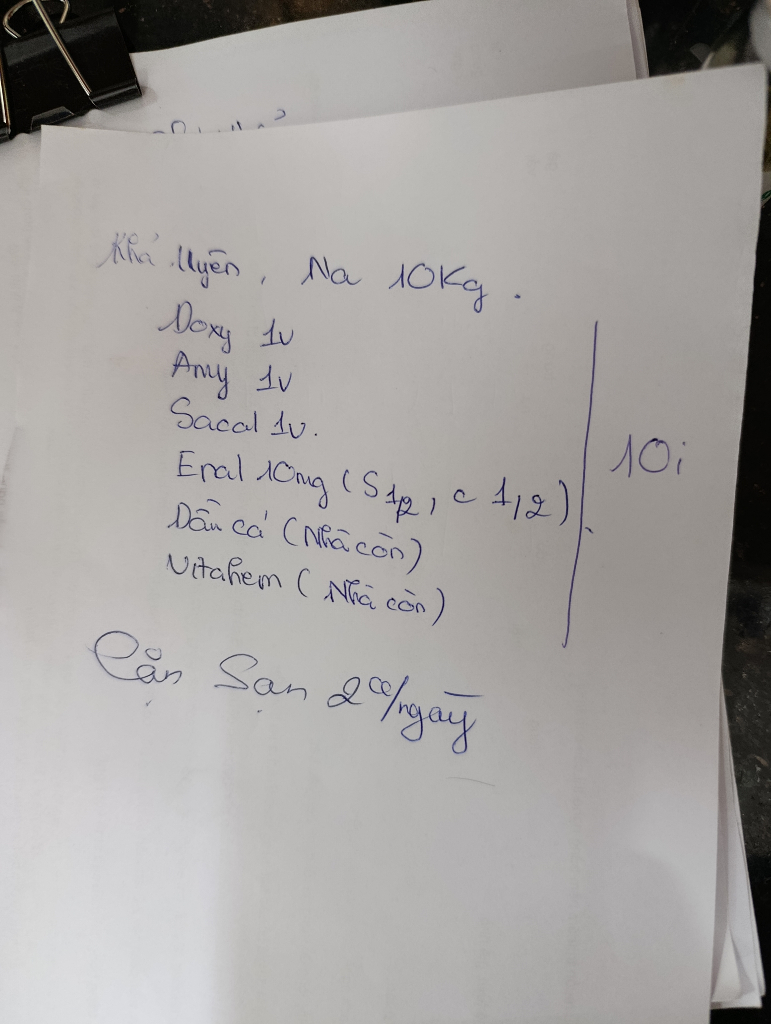 Khả Uyên, Na 10Kg.
Doxy 1v
Amy 1v
Sacal 1v.
Enal 10mg (S 1/2, c 1/2)
Dầu cá (Nhà còn)
Vitahem (Nhà còn)
10i
Cặn Sạn 2cc/ngày